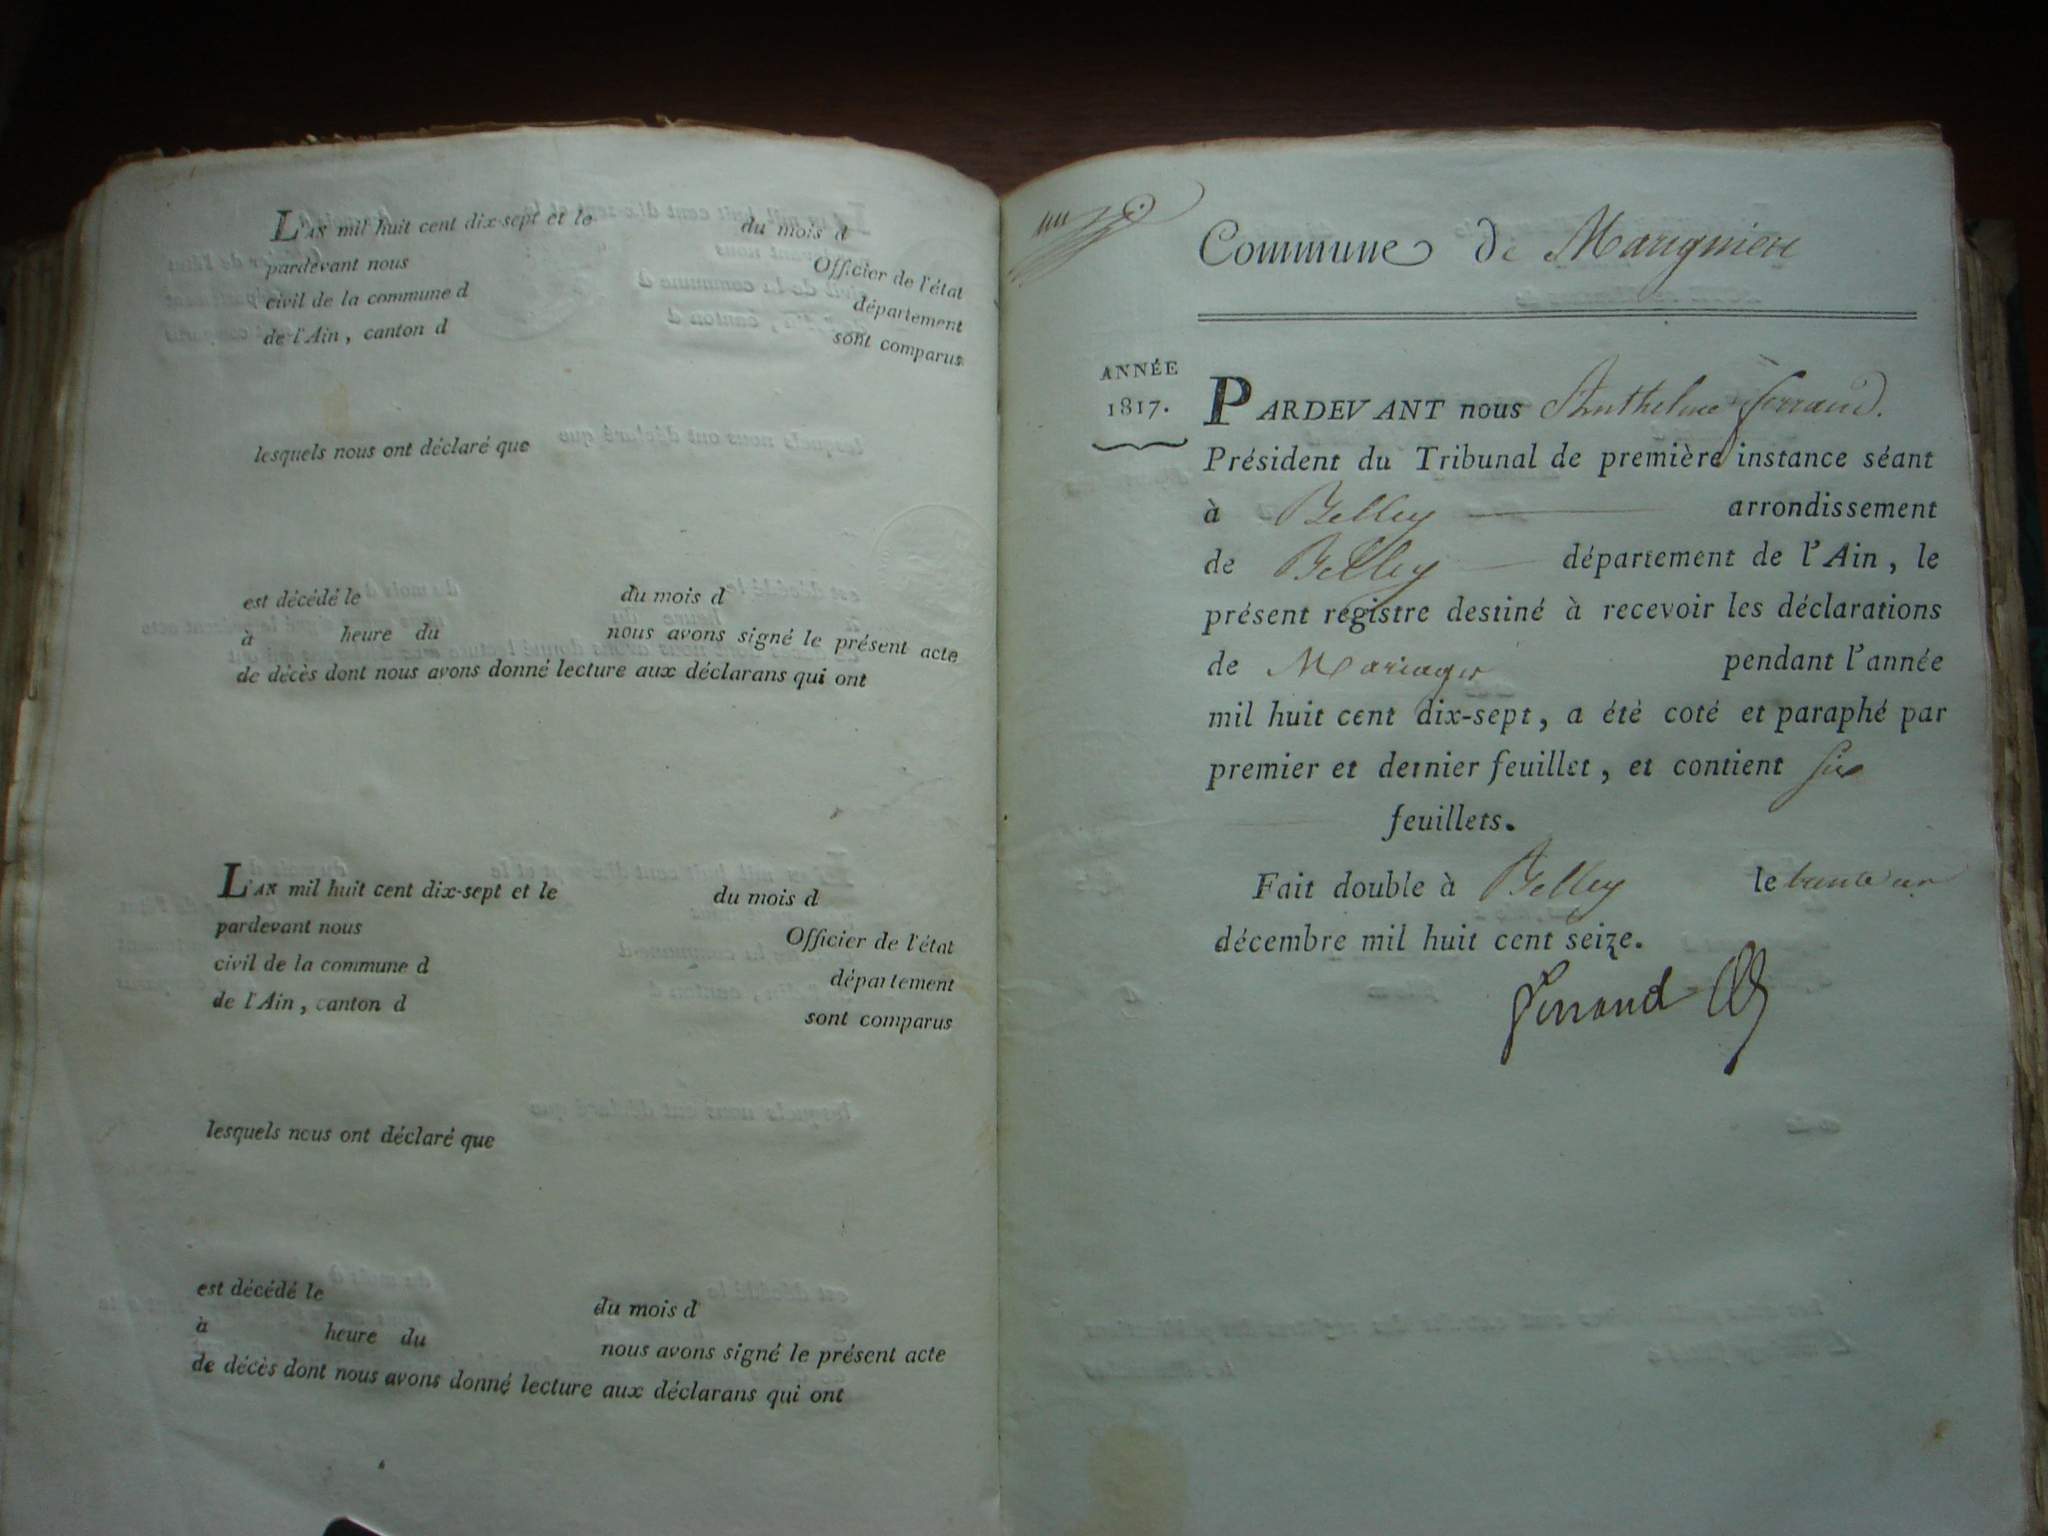 L'AN mil huit cent dix-sept et le du mois d
pardevant nous Officier de l'état
civil de la commune d département
de l'Ain, canton d sont comparus
lesquels nous ont déclaré que
est décédé le du mois d
à heure du nous avons signé le présent acte
de décès dont nous avons donné lecture aux déclarans qui ont
L'AN mil huit cent dix-sept et le du mois d
pardevant nous Officier de l'état
civil de la commune d département
de l'Ain, canton d sont comparus
lesquels nous ont déclaré que
est décédé le du mois d
à heure du nous avons signé le présent acte
de décès dont nous avons donné lecture aux déclarans qui ont
Commune de Marignieu
ANNÉE
1817.
PARDEVANT nous Anthelme Ferrand.
Président du Tribunal de première instance séant
à Belley arrondissement
de Belley département de l'Ain, le
présent registre destiné à recevoir les déclarations
de Mariages pendant l'année
mil huit cent dix-sept, a été coté et paraphé par
premier et dernier feuillet, et contient six
feuillets.
Fait double à Belley le trente un
décembre mil huit cent seize.
Ferrand